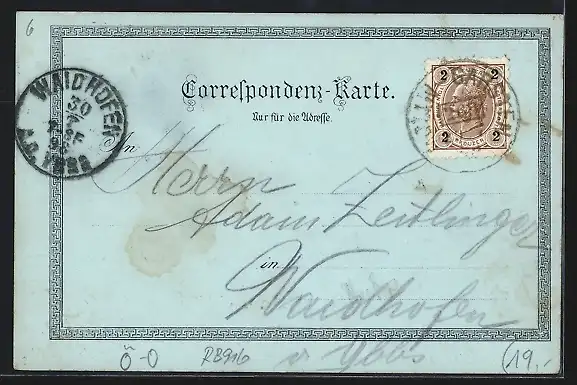 6
WAIDHOFEN
30
7
98
A.D. YBBS
2 2
2 KREUZER 2
Correspondenz-Karte.
Nur für die Adresse.
An
Herrn
Adam Zeitlinger
in Waidhofen
a Ybbs
Ö-O RB916 (19,-